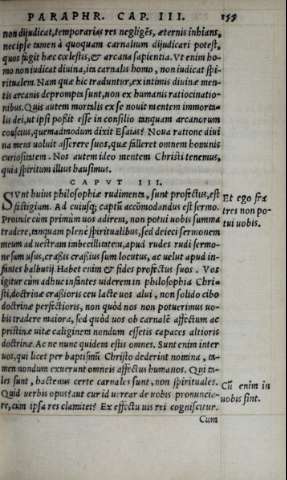 PARAPHR. CAP. III. 155
non dijudicat, temporarias res negligēs, æternis inhians,
nec ipse tamen à quoquam carnalium dijudicari potest,
quos fugit hæc cœlestis, & arcana sapientia. Vt enim ho-
mo non iudicat diuina, ita carnalis homo, non iudicat spi-
ritualem. Nam quæ hic traduntur, ex intimis diuinæ men-
tis arcanis deprompta sunt, non ex humanis ratiocinatio-
nibus. Quis autem mortalis ex se nouit mentem immorta-
lis dei, ut ipsi possit esse in consilio tanquam arcanorum
conscius, quemadmodum dixit Esaias? Noua ratione diui
na mens uoluit asserere suos, quæ falleret omnem hominis
curiositatem. Nos autem ideo mentem Christi tenemus,
quia spiritum illius hausimus.
CAPVT III.
SVnt huius philosophiæ rudimenta, sunt profectus, est
fastigiam. Ad cuiusq; captū accōmodandus est sermo.
Proinde cùm primùm uos adirem, non potui uobis summa
tradere, tanquam planè spiritualibus, sed deieci sermonem
meum ad uestram imbecillitatem, apud rudes rudi sermo-
ne sum usus, crassis crassius sum locutus, ac uelut apud in-
fantes balbutij. Habet enim & fides profectus suos. Vos
igitur cum adhuc infantes uiderem in philosophia Chri-
sti, doctrinæ crassioris ceu lacte uos alui, non solido cibo
doctrinæ perfectioris, non quòd nos non potuerimus uo-
bis tradere maiora, sed quòd uos ob carnalē affectum ac
pristinæ uitæ caliginem nondum essetis capaces altioris
doctrinæ. Ac ne nunc quidem estis omnes. Sunt enim inter
uos, qui licet per baptismū Christo dederint nomina, ta-
men nondum exuerunt omneis affectus humanos. Qui ta-
les sunt, hactenus certe carnales sunt, non spirituales.
Quid uerbis opus? aut cur id uerear de uobis pronuncia-
re, cùm ipsa res clamitet? Ex effectu uis rei cognoscitur.
Cum
Et ego fra
tres non po-
tui uobis.
Cū enim in
uobis sint.